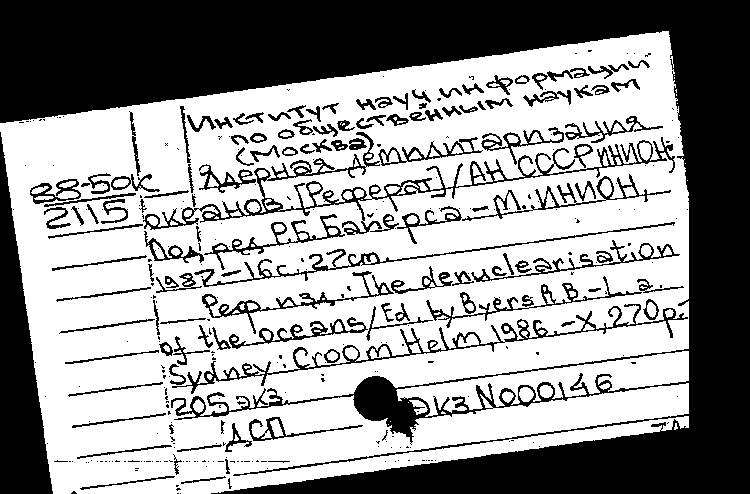 Институт науч. информации
по общественным наукам
(Москва).
Ядерная демилитаризация
88-50к
2115
океанов: [Реферат] / АН СССР ИНИОН;
Под ред. Р.Б. Байерса. - М.: ИНИОН,
1987. - 16с.; 27см.
Реф. изд.: The denuclearisation
of the oceans / Ed. by Byers R.B. - L. a.
Sydney: Croom Helm, 1986. - X, 270p. -
205 экз.
ДСП
Экз N000146.